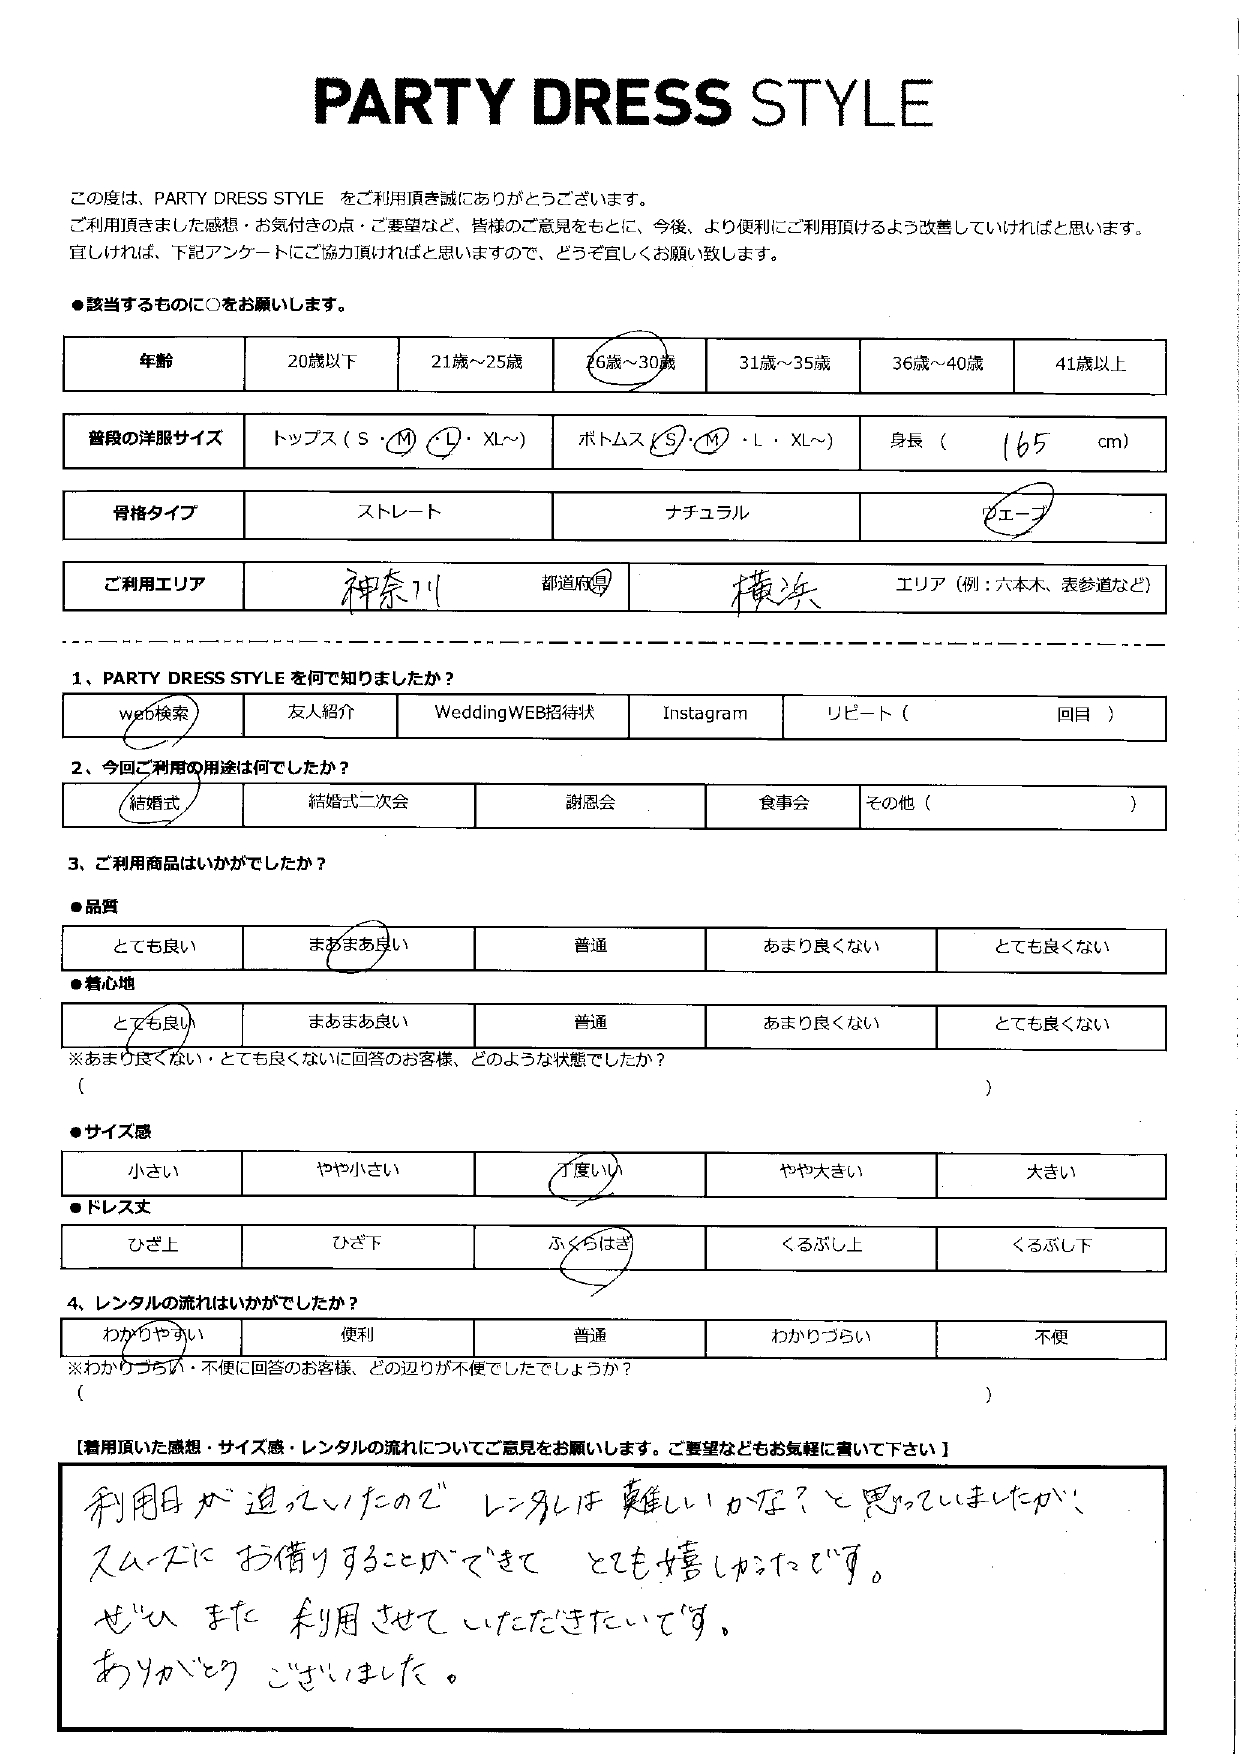 PARTY DRESS STYLE
この度は、PARTY DRESS STYLE をご利用頂き誠にありがとうございます。
ご利用頂きました感想・お気付きの点・ご要望など、皆様のご意見をもとに、今後、より便利にご利用頂けるよう改善していければと思います。
宜しければ、下記アンケートにご協力頂ければと思いますので、どうぞ宜しくお願い致します。
●該当するものに○をお願いします。
年齢 20歳以下 21歳～25歳 26歳～30歳 31歳～35歳 36歳～40歳 41歳以上
普段の洋服サイズ トップス ( S ・ M ・ L ・ XL～) ボトムス ( S ・ M ・ L ・ XL～) 身長 ( 165 cm)
骨格タイプ ストレート ナチュラル ウェーブ
ご利用エリア 神奈川 都道府県 横浜 エリア (例：六本木、表参道など)
1、PARTY DRESS STYLE を何で知りましたか？
web検索 友人紹介 WeddingWEB招待状 Instagram リピート ( 回目 )
2、今回ご利用の用途は何でしたか？
結婚式 結婚式二次会 謝恩会 食事会 その他 ( )
3、ご利用商品はいかがでしたか？
●品質
とても良い まあまあ良い 普通 あまり良くない とても良くない
●着心地
とても良い まあまあ良い 普通 あまり良くない とても良くない
※あまり良くない・とても良くないに回答のお客様、どのような状態でしたか？
( )
●サイズ感
小さい やや小さい 丁度いい やや大きい 大きい
●ドレス丈
ひざ上 ひざ下 ふくらはぎ くるぶし上 くるぶし下
4、レンタルの流れはいかがでしたか？
わかりやすい 便利 普通 わかりづらい 不便
※わかりづらい・不便に回答のお客様、どの辺りが不便でしたでしょうか？
( )
【着用頂いた感想・サイズ感・レンタルの流れについてご意見をお願いします。ご要望などもお気軽に書いて下さい】
利用日が迫っていたので レンタルは 難しいかな？と思っていましたが、
スムーズに お借りすることができて とても嬉しかったです。
ぜひ また 利用させて いただきたいです。
ありがとう ございました。